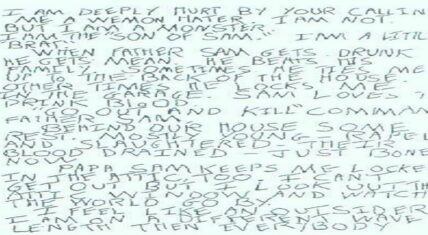 I AM DEEPLY HURT BY YOUR CALLIN
ME A WEMON HATER. I AM NOT.
BUT I AM A MONSTER.
I AM THE "SON OF SAM." I AM A LITTL
BRAT.
WHEN FATHER SAM GETS DRUNK
HE GETS MEAN. HE BEATS HIS
FAMILY. SOMETIMES HE TIES ME
UP TO THE BACK OF THE HOUSE.
OTHER TIMES HE LOCKS ME
IN THE GARAGE. SAM LOVES
DRINK BLOOD.
"GO OUT AND KILL" COMMAN
FATHER SAM.
BEHIND OUR HOUSE SOME
REST. MOSTLY YOUNG - RAPED
AND SLAUGHTERED - THEIR
BLOOD DRAINED - JUST BONE
NOW
PAPA SAM KEEPS ME LOCKE
IN THE ATTIC, TOO. I CAN'T
GET OUT BUT I LOOK OUT TH
ATTIC WINDOW AND WATCH
THE WORLD GO BY.
I FEEL LIKE AN OUTSIDER.
I AM ON A DIFFERENT WAVE
LENGTH THEN EVERYBODY